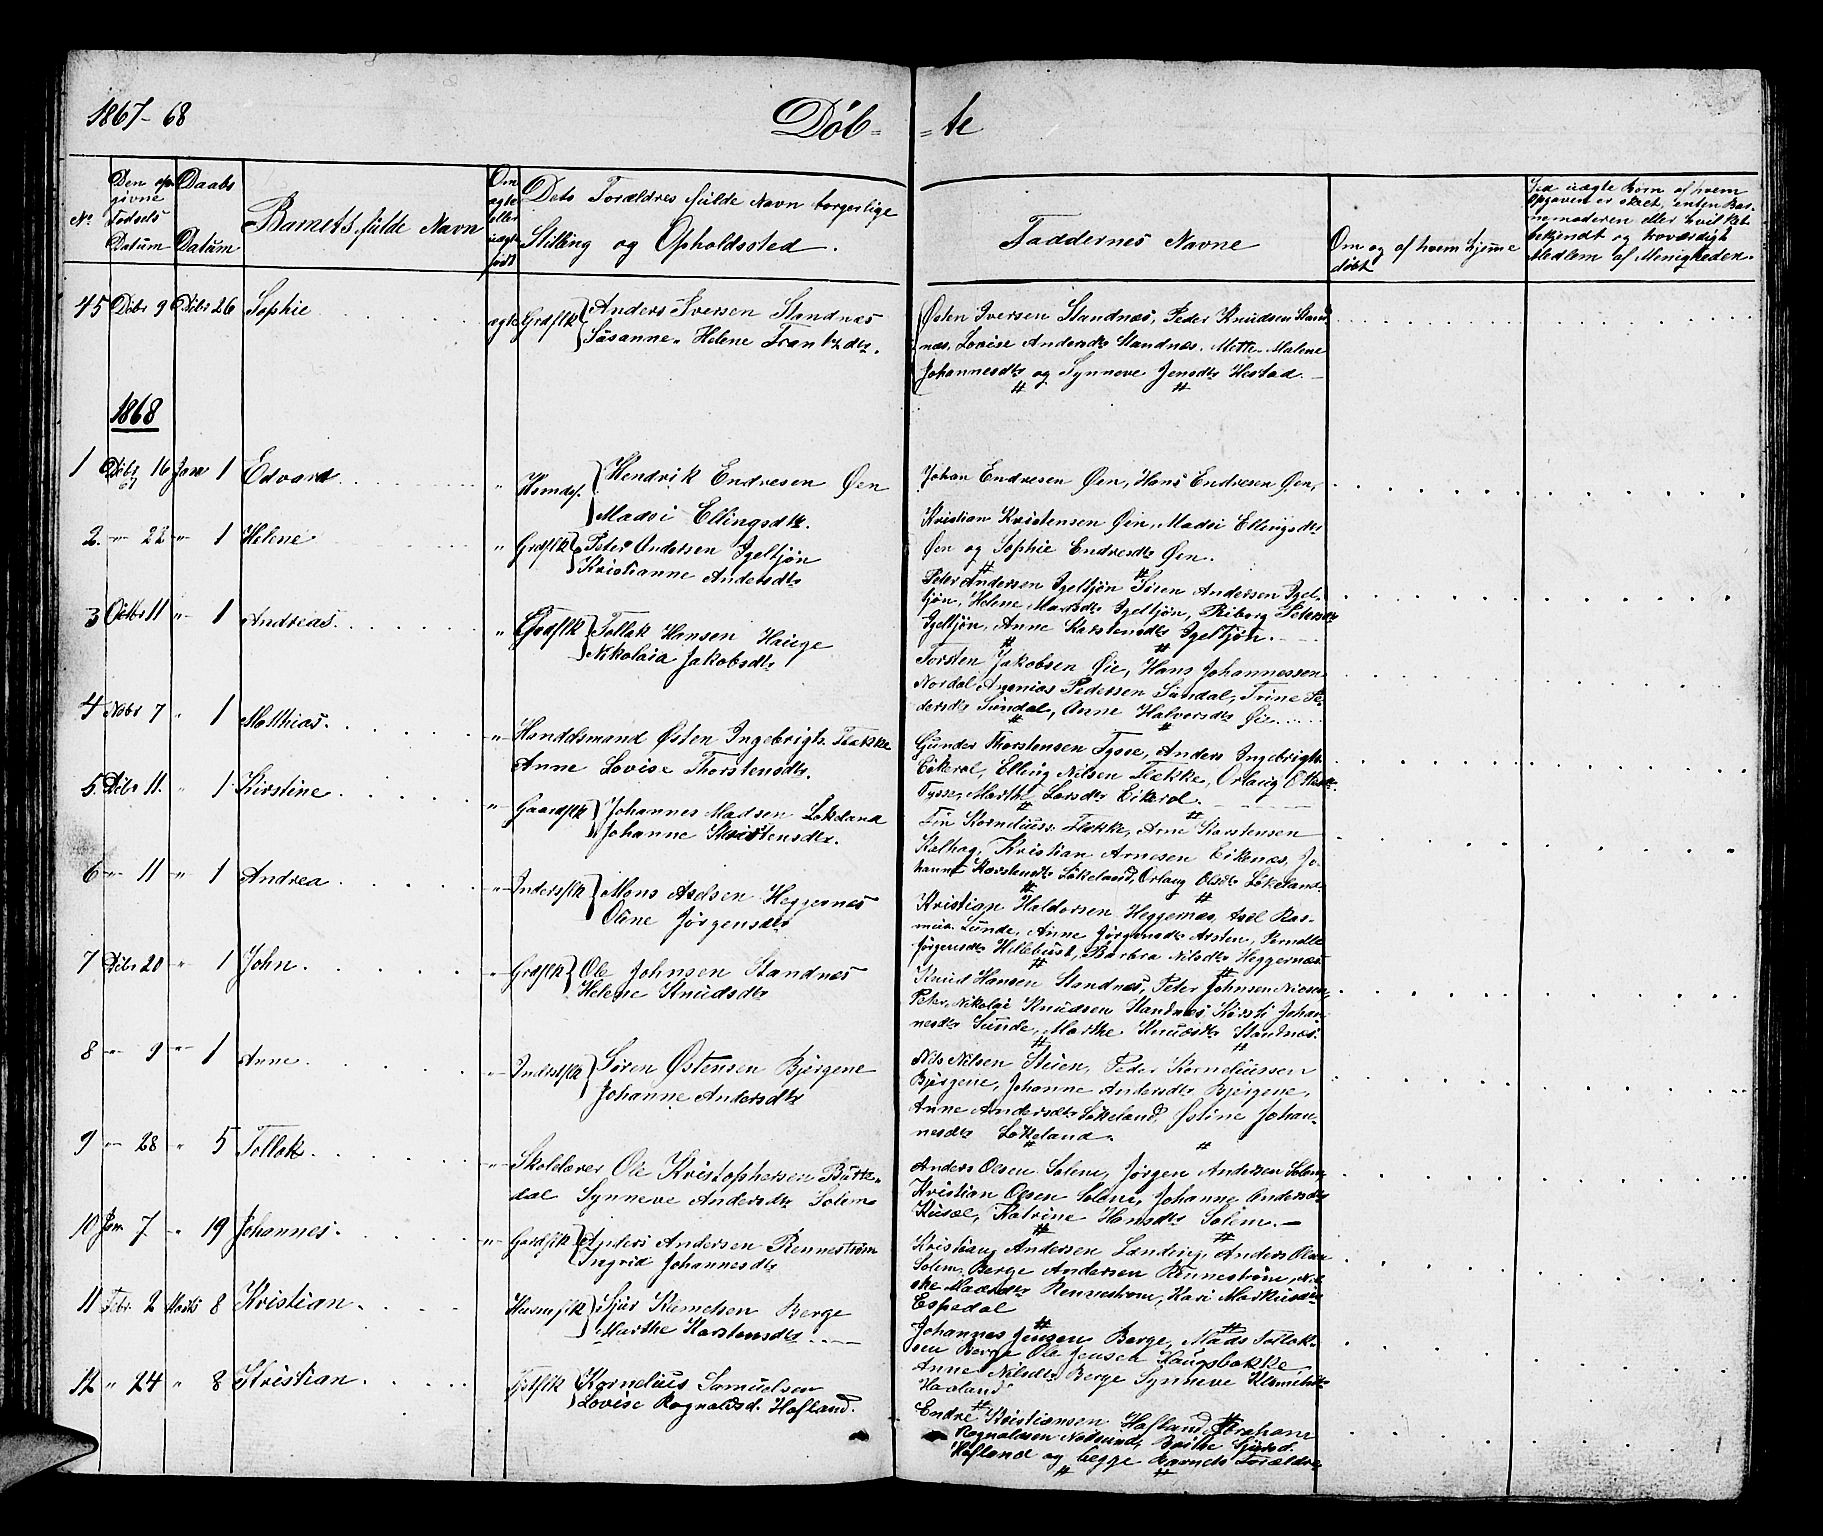 1867-68
Döb= =te
No
Den op-
givne
Fødsels
Datum
Daabs
Datum
Barnets fulde Navn
Om
ægte
eller
uægte
født
Dets Forældres fulde Navn borgerlige
Stilling og Opholdssted.
Faddernes Navne
Om og af hvem hjemme
døbt
Ved uægte Børn af hvem
Opgaven er skeet, enten Bar-
nemoderen eller hvilket
bekjendt og troværdigt
Medlem af Menigheden.
45 Dcbr 9 Dcbr 26 Sophie ægte Grdflk Anders Iversen Standnæs
Susanne Helene Frantzdtr.
Østen Iversen Standnæs, Peder Knudsen Stand-
næs, Lovise Andersdtr Standnæs. Mette Malene
Johannesdtr og Synneve Jensdtr Hestad.
1868
1 Dcbr 67 16 Janr 1 Edvard " Husmdsf. Hendrik Endresen Øen
Madsi Ellingsdtr.
Johan Endresen Øen, Hans Endresen Øen,
Kristian Kristensen Øen, Madsi Ellingsdtr
Øen og Sophie Endresdtr Øen.
2. " 22 " 1 Helene " Grdflk Peter Andersen Igeltjøn
Kristianne Andersdtr
Peter Andersen Igeltjøn Søren Andersen Igel-
tjøn, Helene Madsdtr Igeltjøn, Riborg Petersdtr
Igeltjøn, Anne Karstensdtr Igeltjøn.
3 Octbr 11 " 1 Andreas. " Grdflk Tollak Hansen Hauge
Nikolaia Jakobsdtr
Torsten Jakobsen Øie, Hans Johannessen
Nordal Ananias Pedersen Sundal, Trine Pe-
dersdtr Sundal, Anne Halvorsdtr Øie
4 Nobr 7 " 1 Matthias. " Handdsmand Østen Ingebrigts. Flekke
Anne Lovise Thorstensdtr.
Gunder Thorstensen Tysse, Anders Ingebrigts.
Eikerol, Elling Nilsen Flekke, Orlaug
Tysse, Marthe Larsdtr Eikerol.
5. Dcbr 11. " 1 Kirstine " Gaardflk Johannes Madsen Løkeland
Johanne Kristensdtr.
Fin Korneliuss. Flekke, Arne Karstensen
Kalhag, Kristian Arnesen Eikenæs, Jo-
hanne Karstensdtr Løkeland, Orlaug Olsdtr Løkeland.
6 " 11 " 1 Andrea " Inderstflk Mons Axelsen Heggernæs
Oline Jørgensdtr
Kristian Haldorsen Heggernæs, Axel Ras-
mus. Lunde, Anne Jørgensdtr Arsten, Pernille
Jørgensdtr Hillebust, Barbra Nilsdtr Heggernæs
7 Dcbr 20 " 1 John. " Grdflk Ole Johnsen Standnæs
Helene Knudsdtr
Knud Hansen Standnæs, Peter Johnsen
Peter Nikolai Knudsen Standnæs Kirsti Johan-
nesdtr Sunde, Marthe Knudsdtr Standnæs.
8 " 9 " 1 Anne. " Inderstflk Søren Østensen Bjørgene
Johanne Andersdtr
Nils Nilsen Steien, Peder Korneliussen
Bjørgene, Johanne Andersdtr Bjørgene,
Anne Andersdtr Løkeland, Østine Johan-
nesdtr Løkeland.
9 " 28 " 5 Tollak. " Skolelærer Ole Kristophersen Bütte-
dal Synneve Andersdtr Solem
Anders Olsen Solem, Jørgen Andersen Solem,
Kristian Olsen Solem, Johanne Andersdtr
Katrine Hansdtr Solem.
10 Jan 7 " 19 Johannes. " Gardflk Anders Andersen Rennestrøm
Ingrid Johannesdtr
Andersen Anders Olsen
Solem, Berge Andersen Rennestrøm,
Madsdtr Rennestrøm, Kari Markusdtr
Espedal
11 Febr. 2 Marts 8 Kristian Husmflk Sjur Klemetsen Berge
Marthe Karstensdtr
Johannes Jensen Berge, Mads Tollak-
sen Berge Ole Jensen Laugsbakke
Anne Nilsdtr Berge Synneve Klemetsdtr
Hagland
12 " 24 " 8 Kristian Grdflk Kornelius Samuelsen
Lovise Ragnaldsd. Hafland.
Endre Kristiansen Hafland,
Ragnaldsen Nedsund, Berthe Sjursd.
Hafland og begge Barnets Forældre